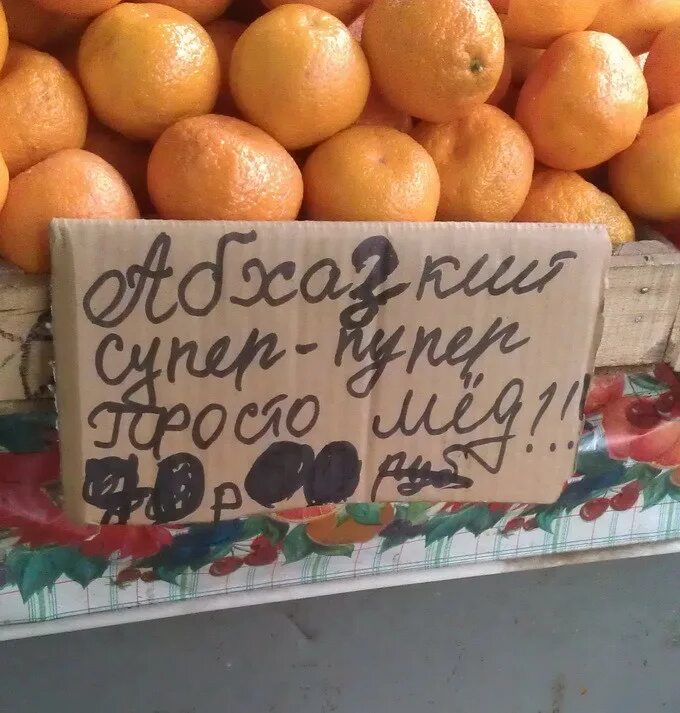 Абхазкий
супер-пупер
Просто мёд!!!
р руб